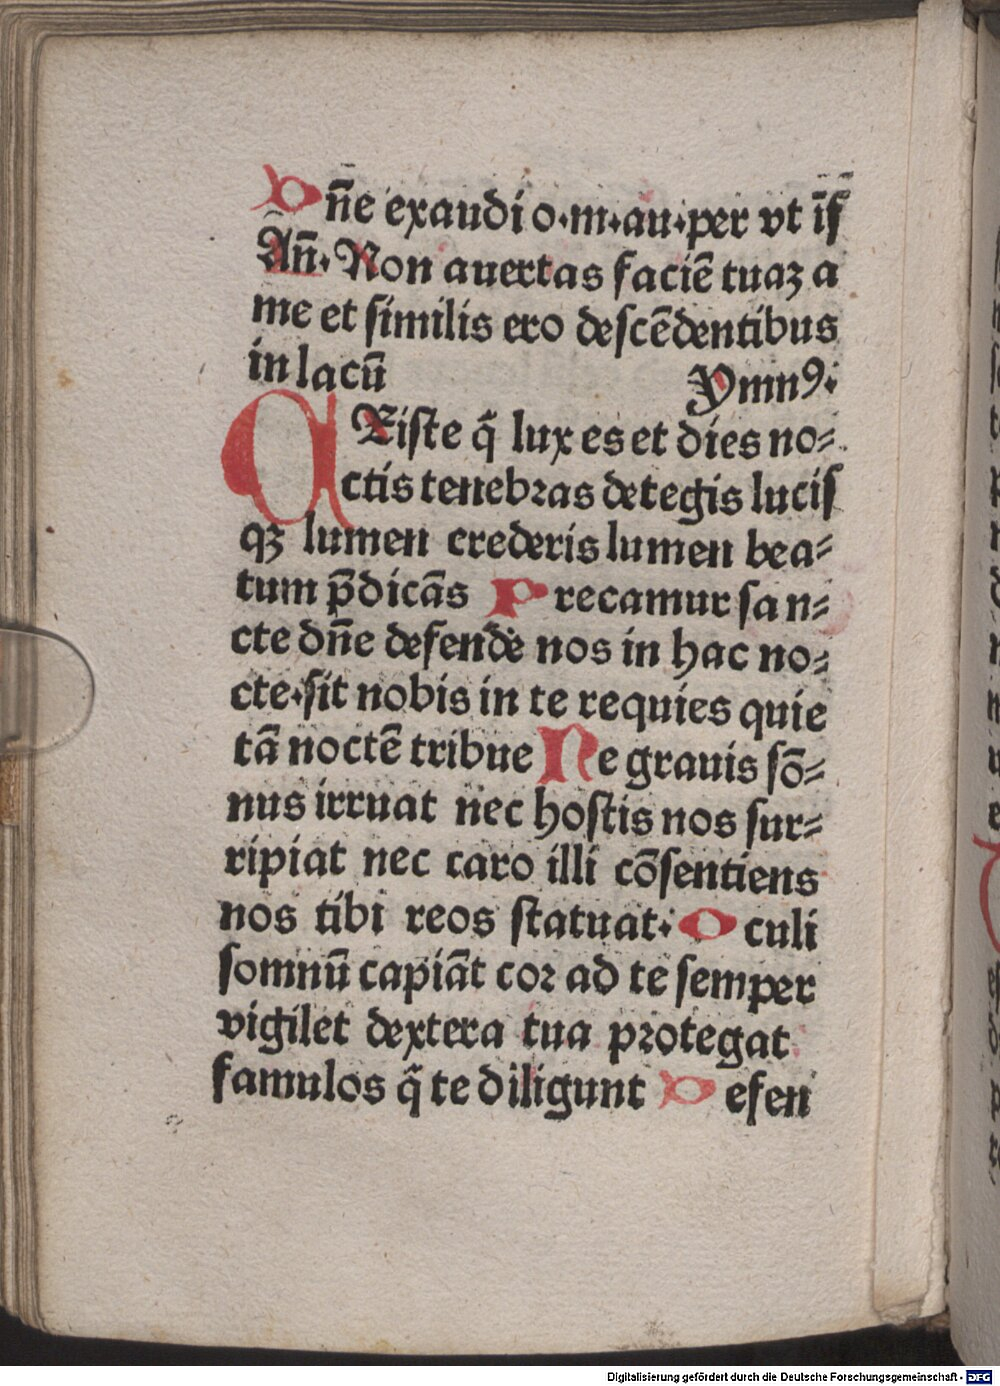 Dn̄e exaudi o·m·au·per vt īſ
Añ· Non auertas faciē tuaʒ a
me et similis ero deſcēdentibus
in lacū Ymnꝰ·
Xiſte q̄ lux es et dies no⸗
ctis tenebꝛas detegis lucis
qʒ lumen crederis lumen bea⸗
tum p̄dicās Precamur ſan⸗
cte dn̄e defende nos in hac no⸗
cte·ſit nobis in te requies quie
tā noctē tribue Ne grauis ſō⸗
nus irruat nec hoſtis nos ſur⸗
ripiat nec caro illi cōſentiens
nos tibi reos ſtatuat· Oculi
ſomnū capiāt coꝛ ad te ſemper
vigilet dextera tua pꝛotegat
famulos q̄ te diligunt Defen
Digitalisierung gefördert durch die Deutsche Forschungsgemeinschaft - DFG